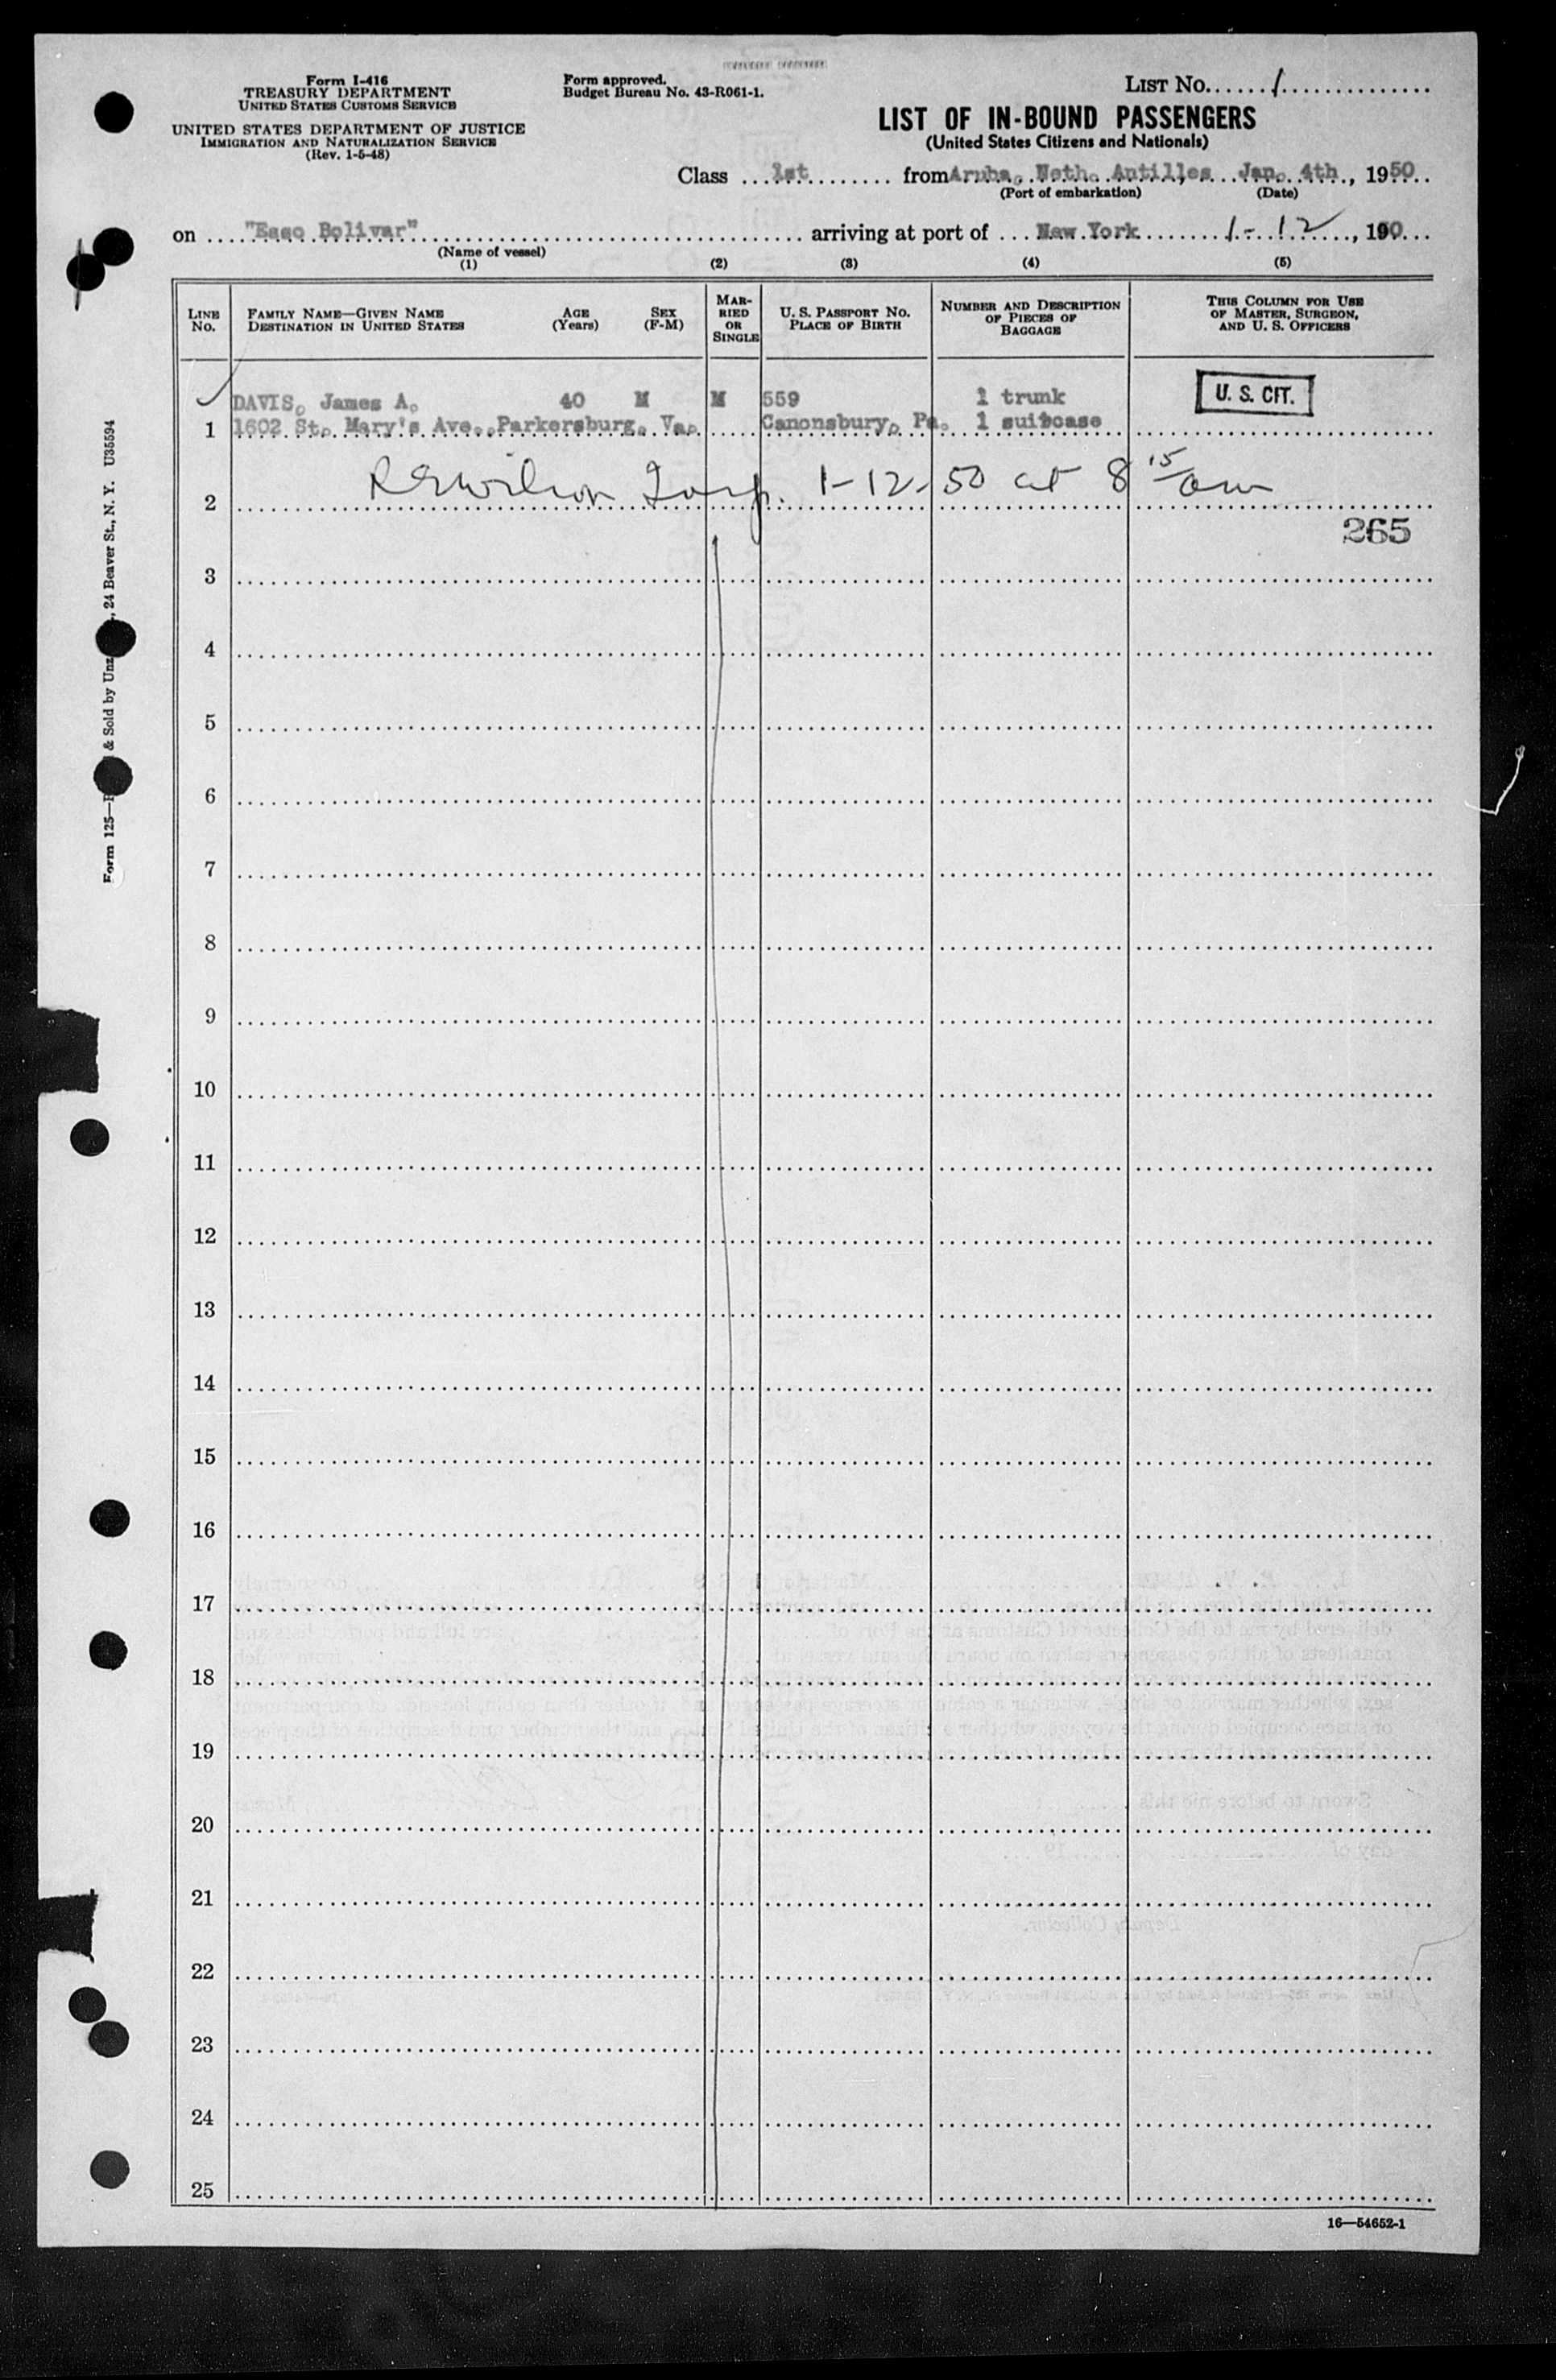 Form I-416
TREASURY DEPARTMENT
UNITED STATES CUSTOMS SERVICE
UNITED STATES DEPARTMENT OF JUSTICE
IMMIGRATION AND NATURALIZATION SERVICE
(Rev. 1-5-48)
Form approved.
Budget Bureau No. 43-R061-1.
LIST NO. 1
LIST OF IN-BOUND PASSENGERS
(United States Citizens and Nationals)
Class 1st from Aruba, Neth. Antilles Jan. 4th, 1950
(Port of embarkation) (Date)
on "Esso Bolivar" arriving at port of New York 1-12, 1950
(Name of vessel)
(1) (2) (3) (4) (5)
LINE No. FAMILY NAME—GIVEN NAME DESTINATION IN UNITED STATES AGE (Years) SEX (F-M) MARRIED OR SINGLE U. S. PASSPORT NO. PLACE OF BIRTH NUMBER AND DESCRIPTION OF PIECES OF BAGGAGE THIS COLUMN FOR USE OF MASTER, SURGEON, AND U. S. OFFICERS
DAVIS, James A. 40 M M 559 1 trunk U. S. CIT.
1 1602 St. Mary's Ave., Parkersburg, Va. Canonsbury, Pa. 1 suitcase
2 1-12-50 at 8 15 am
265
3
4
5
6
7
8
9
10
11
12
13
14
15
16
17
18
19
20
21
22
23
24
25
16—54652-1
Form 125— & Sold by Unz , 24 Beaver St., N. Y. U35594